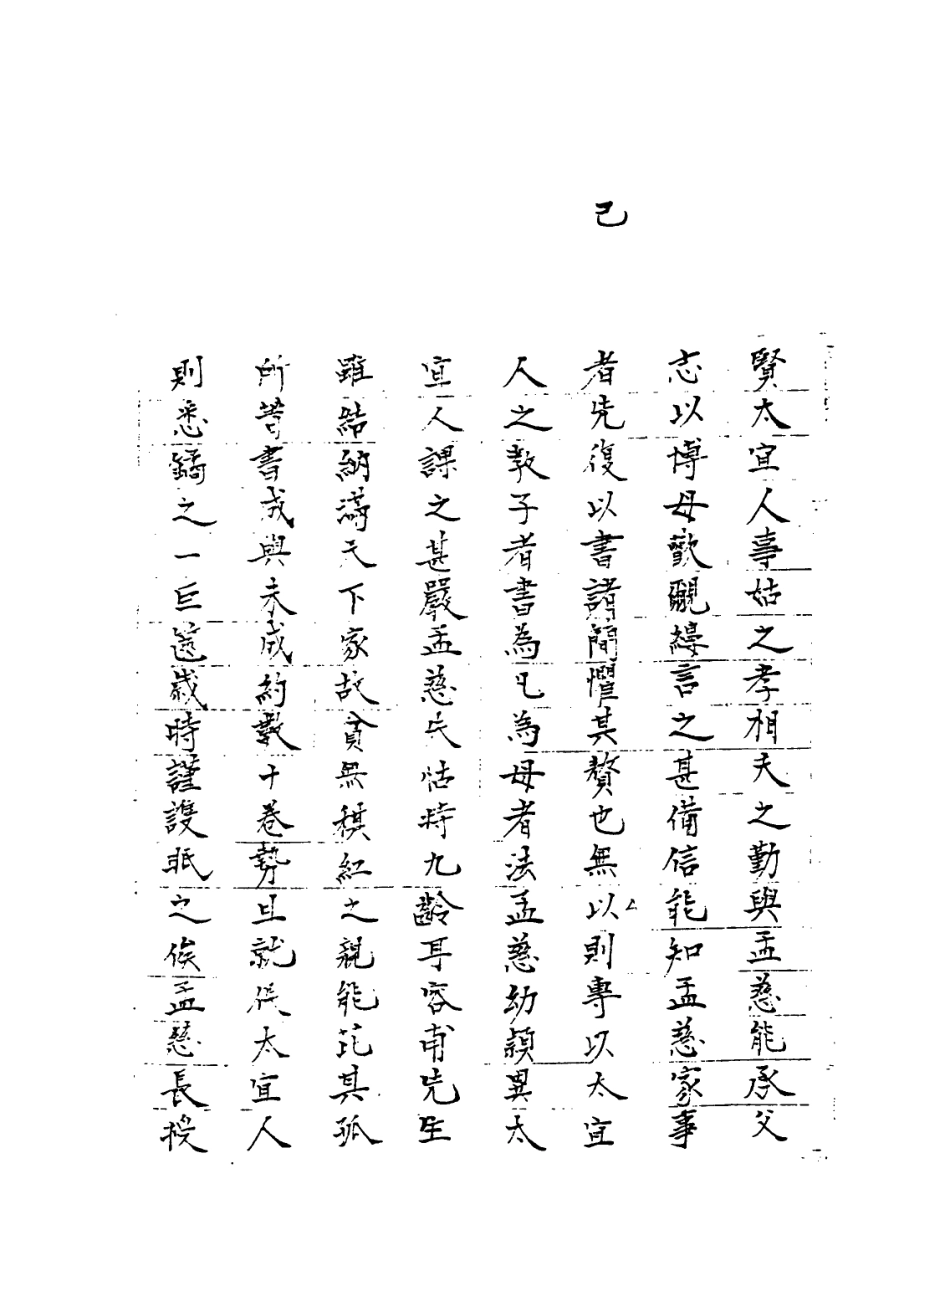 己
賢太宜人事姑之孝相夫之勤與孟慈能承父
志以博母歡覼縷言之甚備信能知孟慈家事
者先復以書諸簡懼其贅也無以則專以太宜
人之教子者書為凡為母者法孟慈幼穎異太
宜人課之甚嚴孟慈失怙時九齡耳容甫先生
雖結納滿天下家故貧無積紅之親能芘其孤
所著書成與未成約數十卷勢且就佚太宜人
則悉鐍之一巨篋歲時謹護眂之俟孟慈長授